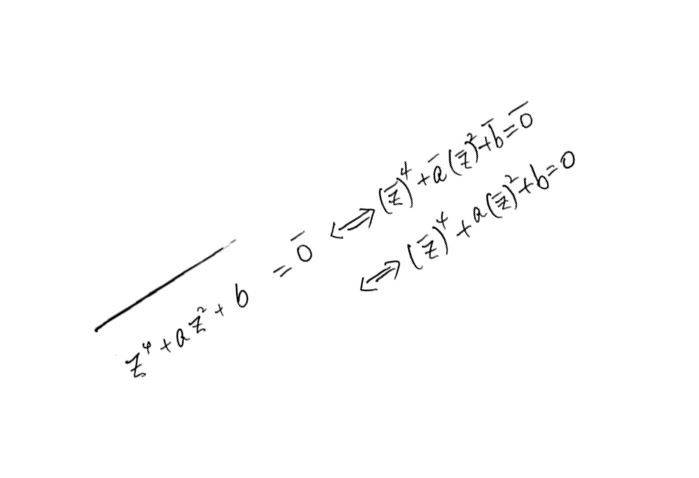 $\overline{z^4 + az^2 + b} = \overline{0} \iff (\overline{z})^4 + \overline{a}(\overline{z})^2 + \overline{b} = \overline{0}$
$\iff (\overline{z})^4 + a(\overline{z})^2 + b = 0$